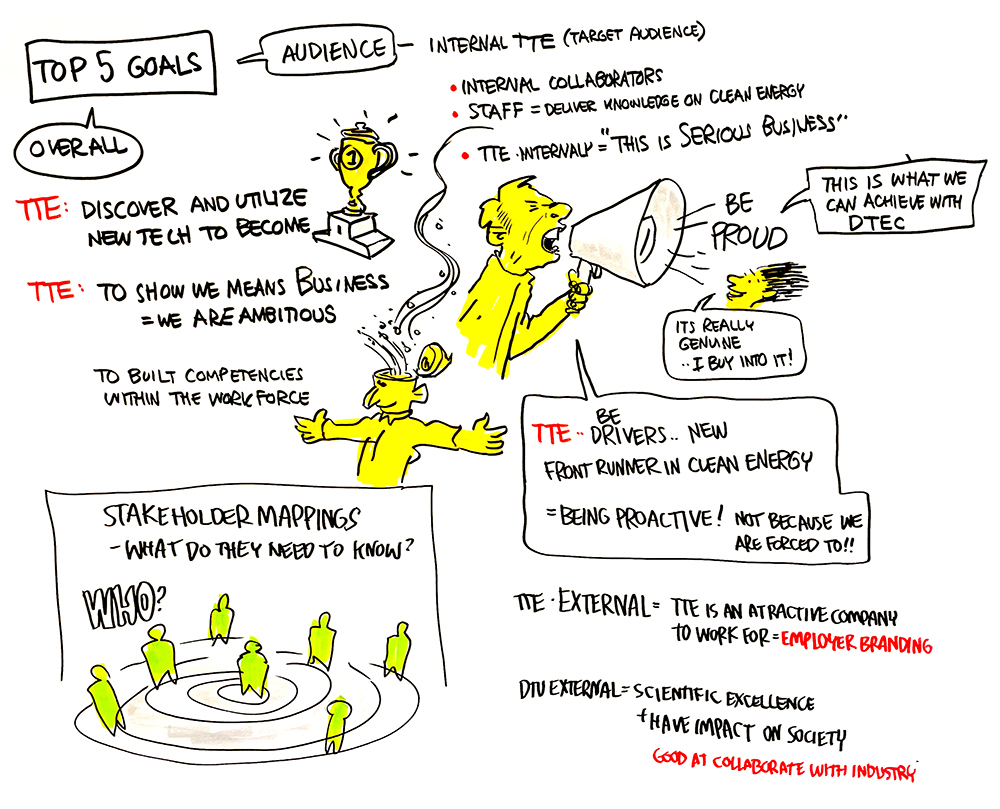 TOP 5 GOALS
AUDIENCE - INTERNAL TTE (TARGET AUDIENCE)
• INTERNAL COLLABORATORS
• STAFF = DELIVER KNOWLEDGE ON CLEAN ENERGY
• TTE INTERNALY = "THIS IS SERIOUS BUSINESS"
OVERALL
1
TTE: DISCOVER AND UTILIZE
NEW TECH TO BECOME
TTE: TO SHOW WE MEANS BUSINESS
= WE ARE AMBITIOUS
TO BUILT COMPETENCIES
WITHIN THE WORKFORCE
BE
PROUD
THIS IS WHAT WE
CAN ACHIEVE WITH
DTEC
ITS REALLY
GENUINE
..I BUY INTO IT!
TTE.. BE DRIVERS.. NEW
FRONT RUNNER IN CLEAN ENERGY
= BEING PROACTIVE! NOT BECAUSE WE
ARE FORCED TO!!
STAKEHOLDER MAPPINGS
- WHAT DO THEY NEED TO KNOW?
WHO?
TTE · EXTERNAL = TTE IS AN ATRACTIVE COMPANY
TO WORK FOR = EMPLOYER BRANDING
DTU EXTERNAL = SCIENTIFIC EXCELLENCE
+ HAVE IMPACT ON SOCIETY
GOOD AT COLLABORATE WITH INDUSTRY